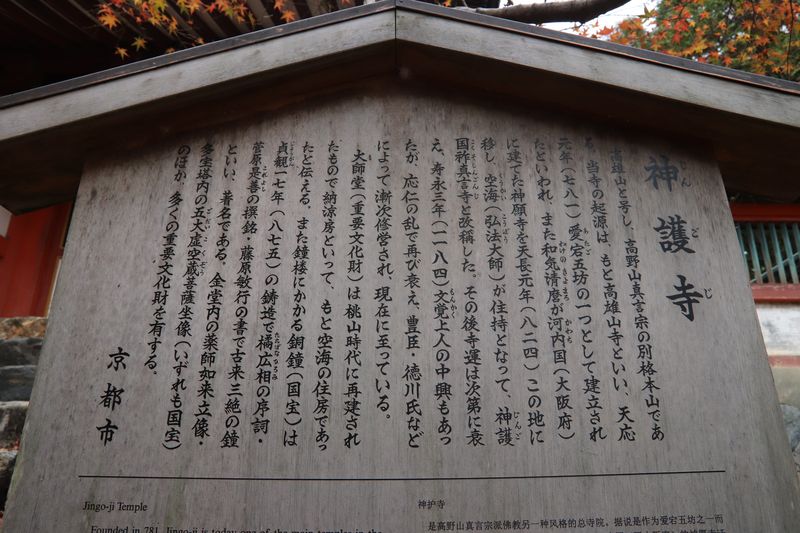 神護寺
高雄山と号し、高野山真言宗の別格本山であ
る。当寺の起源は、もと高雄山寺といい、天応
元年(七八一)愛宕五坊の一つとして建立され
たといわれ、また和気清磨が河内国(大阪府)
に建てた神願寺を天長元年(八二四)この地に
移し、空海(弘法大師)が住持となって、神護
国祚真言寺と改稱した。その後寺運は次第に衰
え、寿永三年(一一八四)文覚上人の中興もあっ
たが、応仁の乱で再び衰え、豊臣・徳川氏など
によって漸次修営され、現在に至っている。
大師堂(重要文化財)は桃山時代に再建され
たもので納涼房といって、もと空海の住房であっ
たと伝える。また鐘楼にかかる銅鐘(国宝)は
貞観一七年(八七五)の鋳造で橘広相の序詞・
菅原是善の撰銘・藤原敏行の書で古来三絶の鐘
といい、著名である。金堂内の薬師如来立像・
多宝塔内の五大虚空蔵菩薩坐像(いずれも国宝)
のほか、多くの重要文化財を有する。
京都市
Jingo-ji Temple
Founded in 781, Jingo-ji is today one of the main temples in the
神护寺
是高野山真言宗派佛教另一种风格的总寺院，据说是作为爱宕五坊之一而